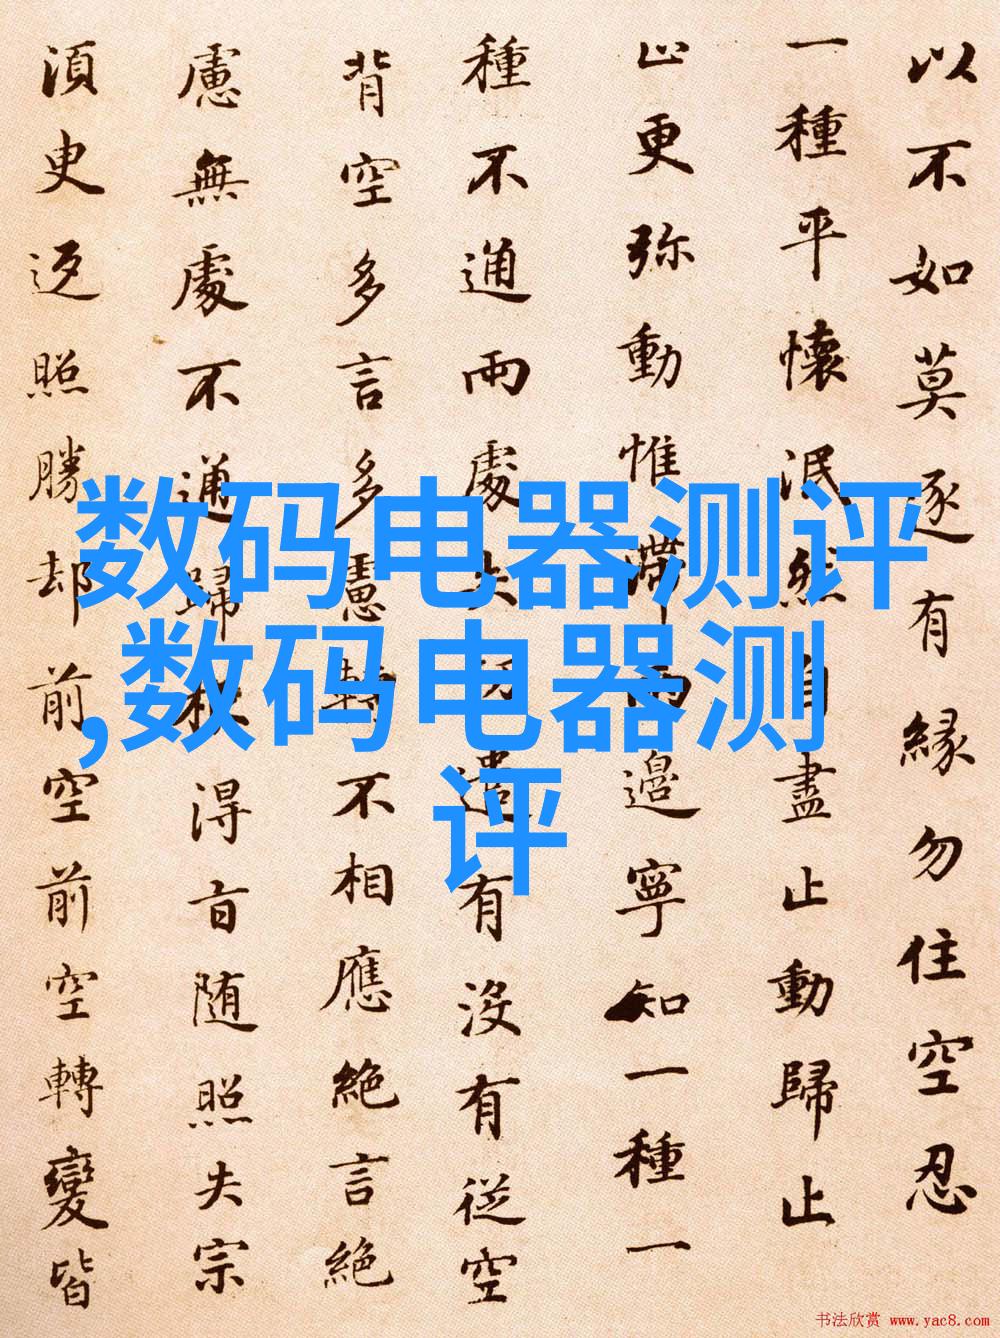 以不如莫逐有緣勿住空忍
一種平懷泯然自盡止動歸止
止更弥動惟滯兩邊寧知一種一
種不通兩處失功遣有没有從空
背空多言多慮轉不相應絶言絶
慮無處不通歸根得旨随照失宗
湏臾返照勝却前空前空轉變皆
数码电器测评
,数码电器测
评
书法欣赏 www.yac8.com